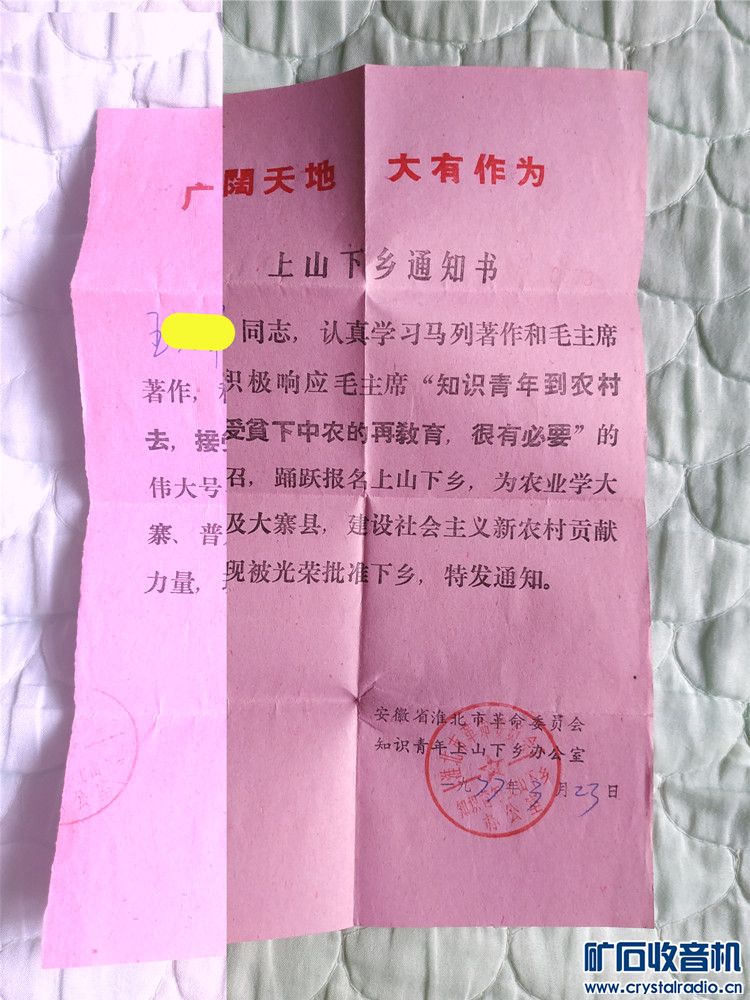 广阔天地 大有作为
上山下乡通知书
王 同志，认真学习马列著作和毛主席
著作，积极响应毛主席“知识青年到农村
去，接受貧下中农的再敎育，很有必要”的
伟大号召，踊跃报名上山下乡，为农业学大
寨、普及大寨县，建设社会主义新农村贡献
力量，现被光荣批准下乡，特发通知。
安徽省淮北市革命委员会
知识青年上山下乡办公室
一九77年3月23日
矿石收音机
www.crystalradio.cn